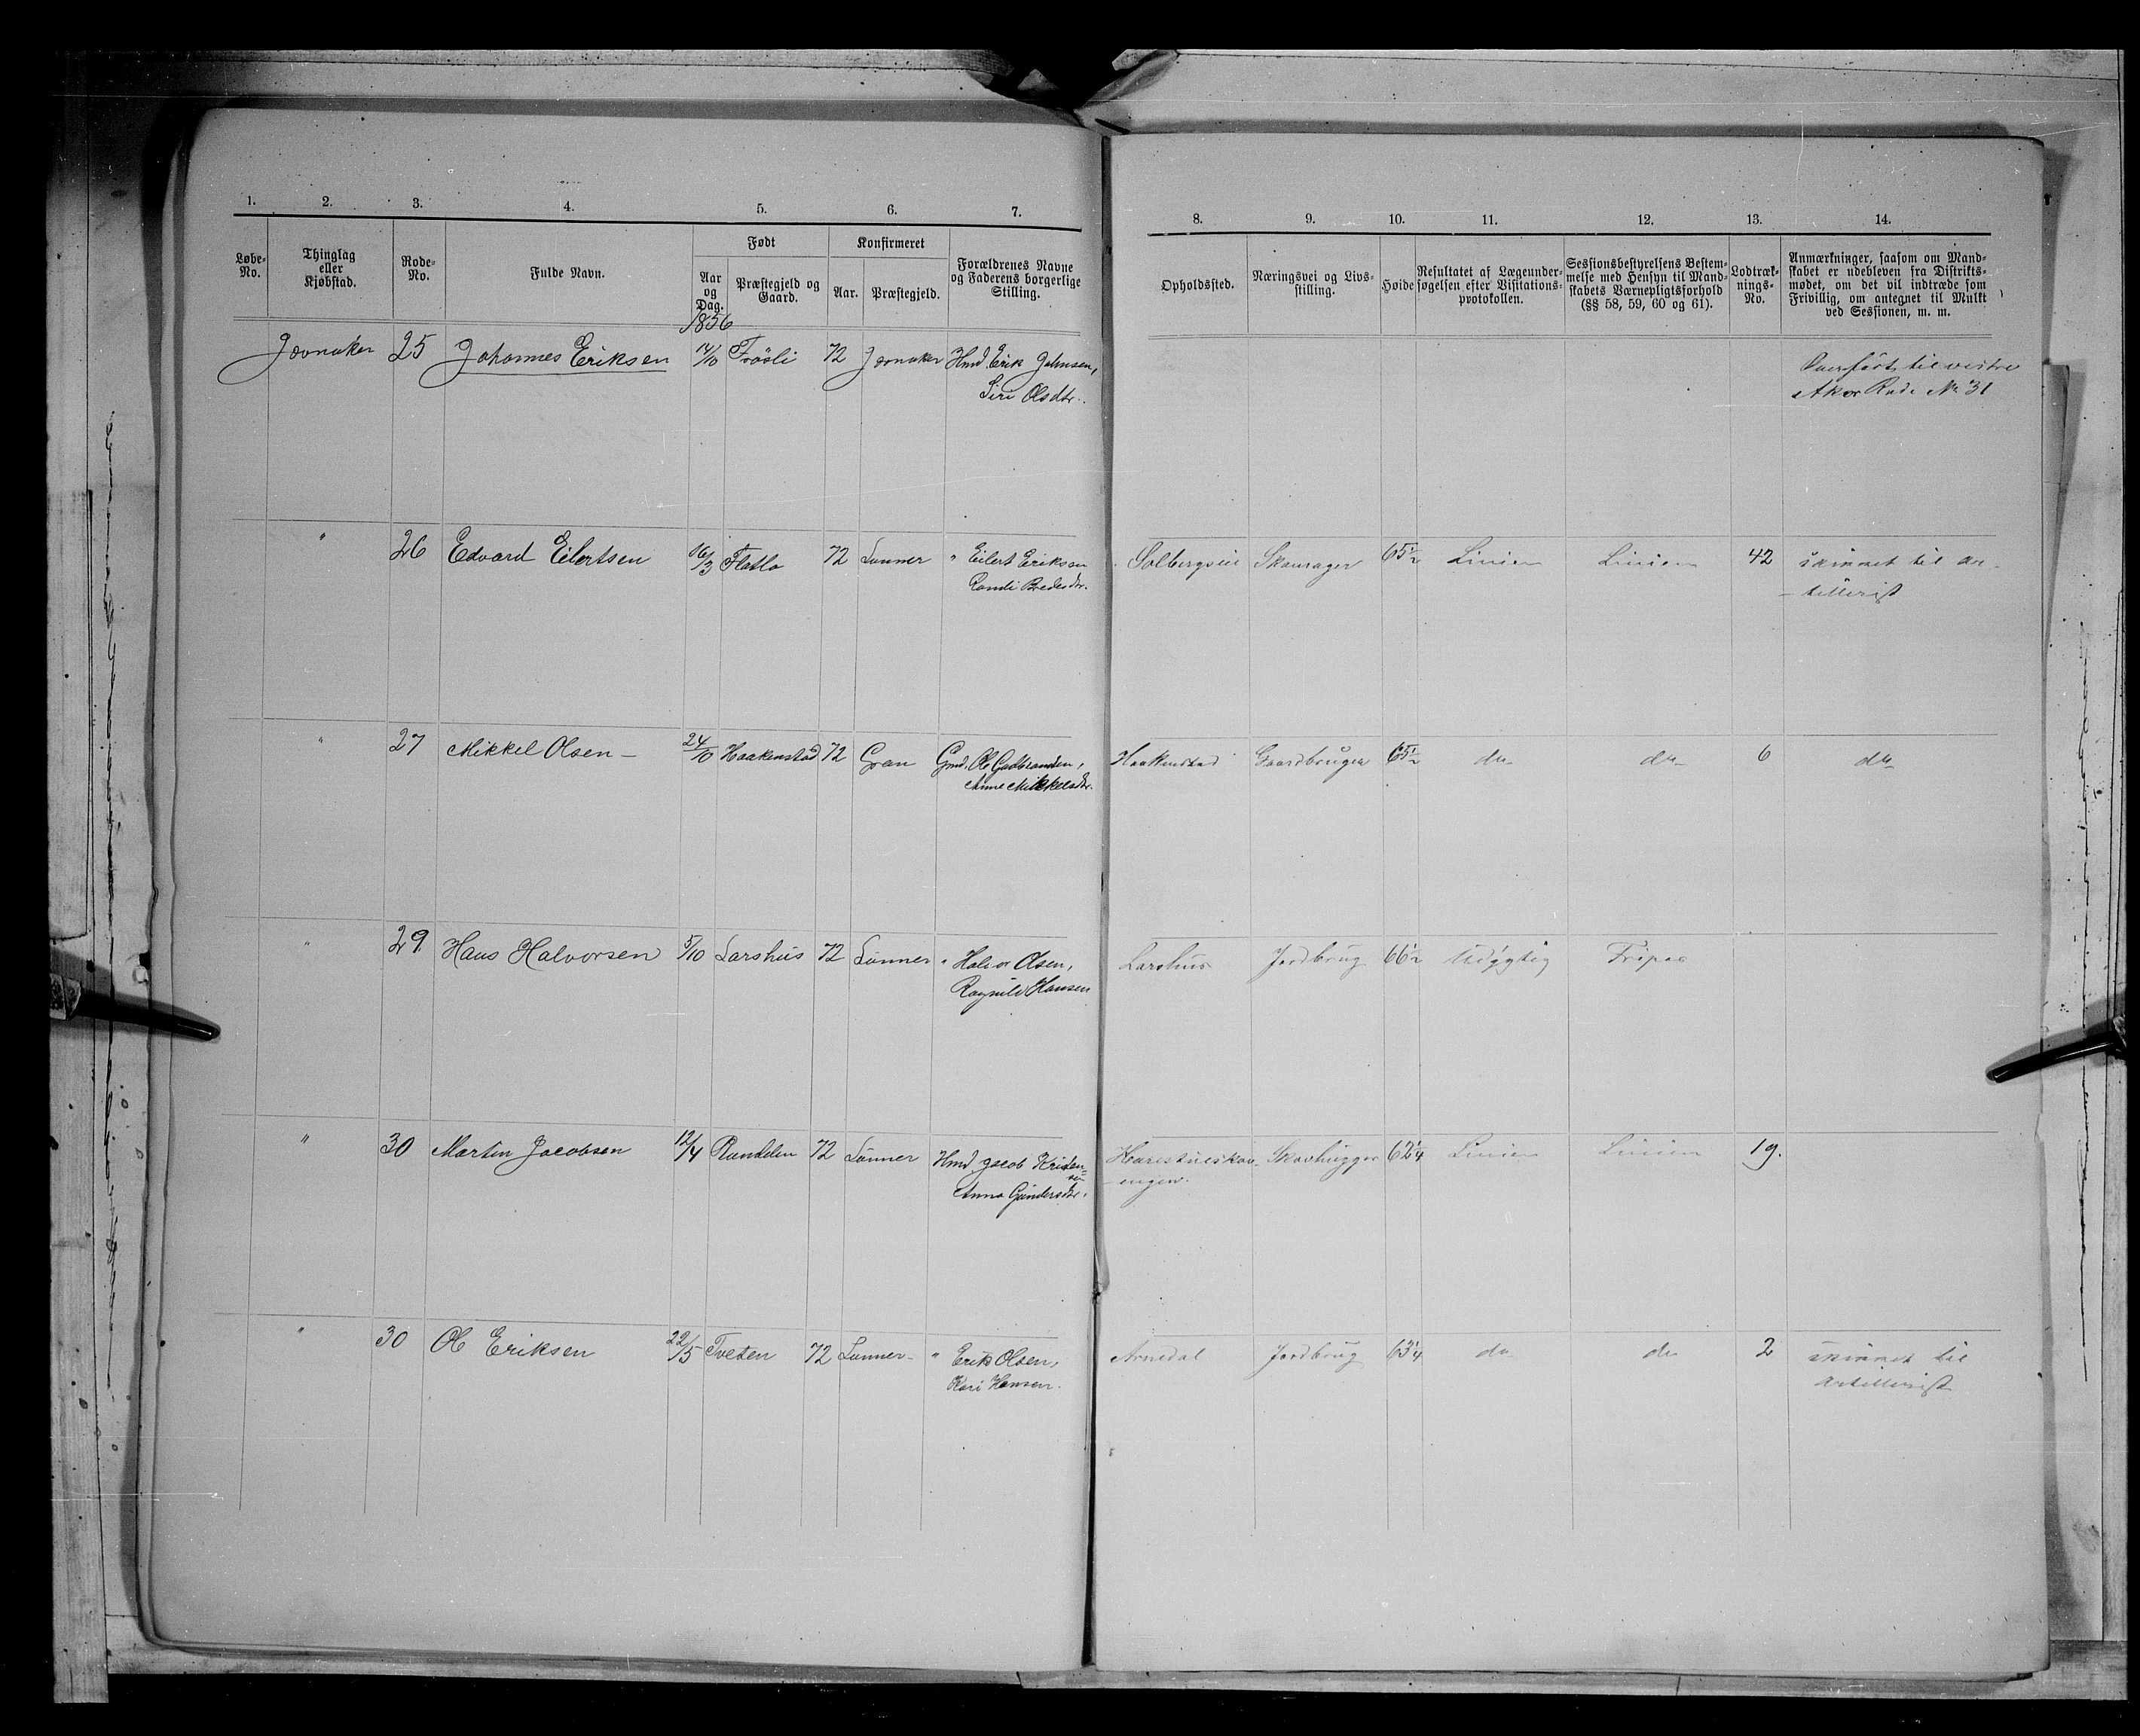 1. 2. 3. 4. 5. 6. 7.
Løbe-No. Thinglag eller Kjøbstad. Rode-No. Fulde Navn. Født Konfirmeret Forældrenes Navne og Faderens borgerlige Stilling.
Aar og Dag. Præstegjeld og Gaard. Aar. Præstegjeld.
1856
Jævnaker 25 Johannes Eriksen 14/10 Frøsli 72 Jævnaker Hmd. Erik Johnsen,
Siri Olsdtr.
" 26 Edvard Eilertsen 16/3 Flatla 72 Lunner " Eilert Eriksen
Randi Bredesdtr.
" 27 Mikkel Olsen – 24/10 Haakenstad 72 Gran Gmd. Ole Gudbrandsen,
Anne Mikkelsdtr.
" 29 Hans Halvorsen 5/10 Larshus 72 Lunner " Halvor Olsen,
Ragnild Hansen
" 30 Martin Jacobsen 12/4 Randelen 72 Lunner Hmd Jacob Kristen=
sen
Anna Gundersdtr.
" 30 Ole Eriksen 22/5 Tveten 72 Lunner " Erik Olsen,
Kari Hansen.
8. 9. 10. 11. 12. 13. 14.
Opholdssted. Næringsvei og Livs-stilling. Høide Resultatet af Lægeunder-søgelsen efter Visitations-protokollen. Sessionsbestyrelsens Bestem-melse med Hensyn til Mand-skabets Værnepligtsforhold (§§ 58, 59, 60 og 61). Lodtræk-nings-No. Anmærkninger, saasom om Mand-skabet er udebleven fra Distrikts-mødet, om det vil indtræde som Frivillig, om antegnet til Mulkt ved Sessionen, m. m.
Overført til vestre
Aker Rode No 31
Solbergseie 65½ Linien Linien 42 skinnet til ar-
tillerist
Haakenstad Gaardbruger 65½ do do 6 do
Larshus Jordbrug 66½ Udygtig Fripas
Harestueskov- Skovhugger 62¼ Linien Linien 19.
engen.
Arnedal Jordbrug 63¼ do do 2 skinnet til
artillerist